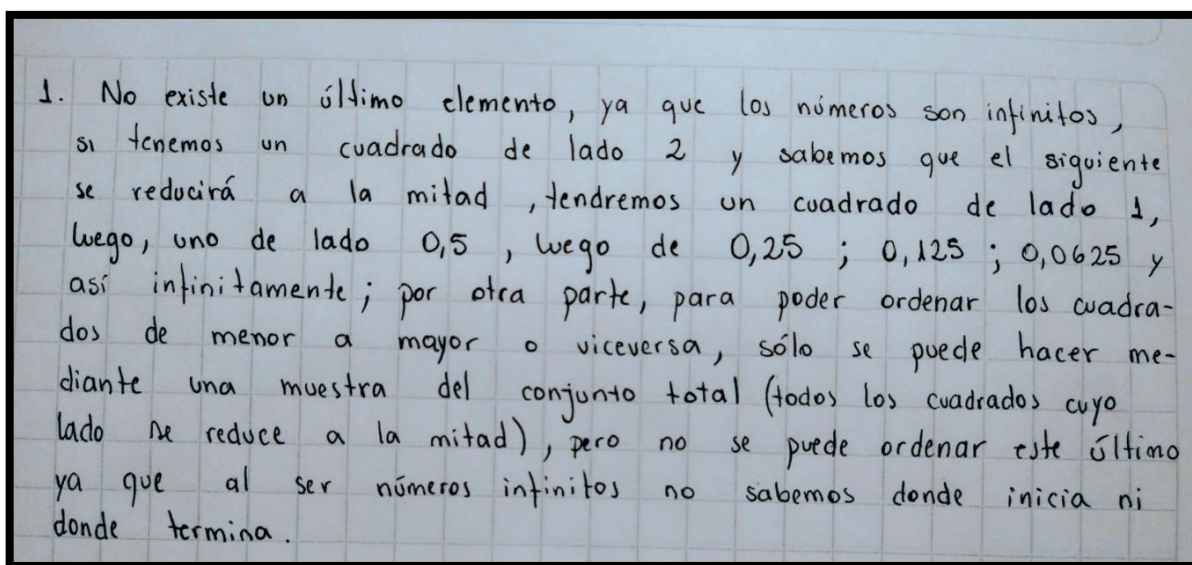 1. No existe un último elemento, ya que los números son infinitos,
si tenemos un cuadrado de lado 2 y sabemos que el siguiente
se reducirá a la mitad, tendremos un cuadrado de lado 1,
luego, uno de lado 0,5, luego de 0,25; 0,125; 0,0625 y
así infinitamente; por otra parte, para poder ordenar los cuadra-
dos de menor a mayor o viceversa, sólo se puede hacer me-
diante una muestra del conjunto total (todos los cuadrados cuyo
lado se reduce a la mitad), pero no se puede ordenar este último
ya que al ser números infinitos no sabemos donde inicia ni
donde termina.